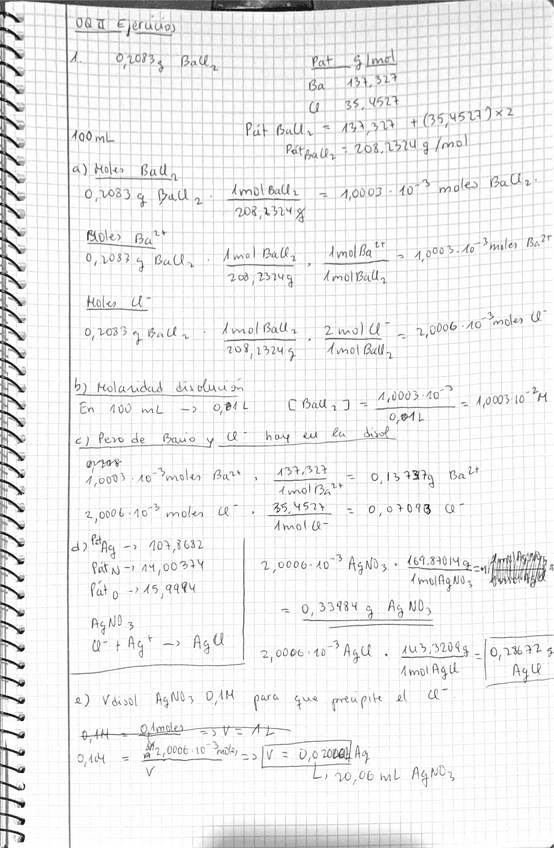 OQ II Ejercicios
1. 0,2083g BaCl₂
Pat g/mol
Ba 137,327
Cl 35,4527
100mL
Pát BaCl₂ = 137,327 + (35,4527)×2
Pát BaCl₂ = 208,2324 g/mol
a) Moles BaCl₂
0,2083 g BaCl₂ · 1mol BaCl₂ / 208,2324 g = 1,0003·10⁻³ moles BaCl₂.
Moles Ba²⁺
0,2083 g BaCl₂ · 1mol BaCl₂ / 208,2324g · 1mol Ba²⁺ / 1mol BaCl₂ = 1,0003·10⁻³ moles Ba²⁺
Moles Cl⁻
0,2083g BaCl₂ · 1mol BaCl₂ / 208,2324g · 2 mol Cl⁻ / 1mol BaCl₂ = 2,0006·10⁻³ moles Cl⁻
b) Molaridad disolución
En 100 mL → 0,1L [BaCl₂] = 1,0003·10⁻³ / 0,1L = 1,0003·10⁻²M
c) Peso de Bario y Cl⁻ hay en la disol
1,0003·10⁻³ moles Ba²⁺ · 137,327 / 1mol Ba²⁺ = 0,13737g Ba²⁺
2,0006·10⁻³ moles Cl⁻ · 35,4527 / 1mol Cl⁻ = 0,07093 Cl⁻
d) Pát Ag → 107,8682
Pát N → 14,00374
Pát O → 15,9994
AgNO₃
Cl⁻ + Ag⁺ → AgCl
2,0006·10⁻³ AgNO₃ · 169,87014g / 1mol AgNO₃ =
= 0,33984 g AgNO₃
2,0006·10⁻³ AgCl · 143,3209g / 1mol AgCl = 0,28672 g AgCl
e) Vdisol AgNO₃ 0,1M para que precipite el Cl⁻
0,1M = 0,1moles ⇒ V = 1L
0,1M = 2,0006·10⁻³ moles / V ⇒ V = Ag
↳ 20,06 mL AgNO₃